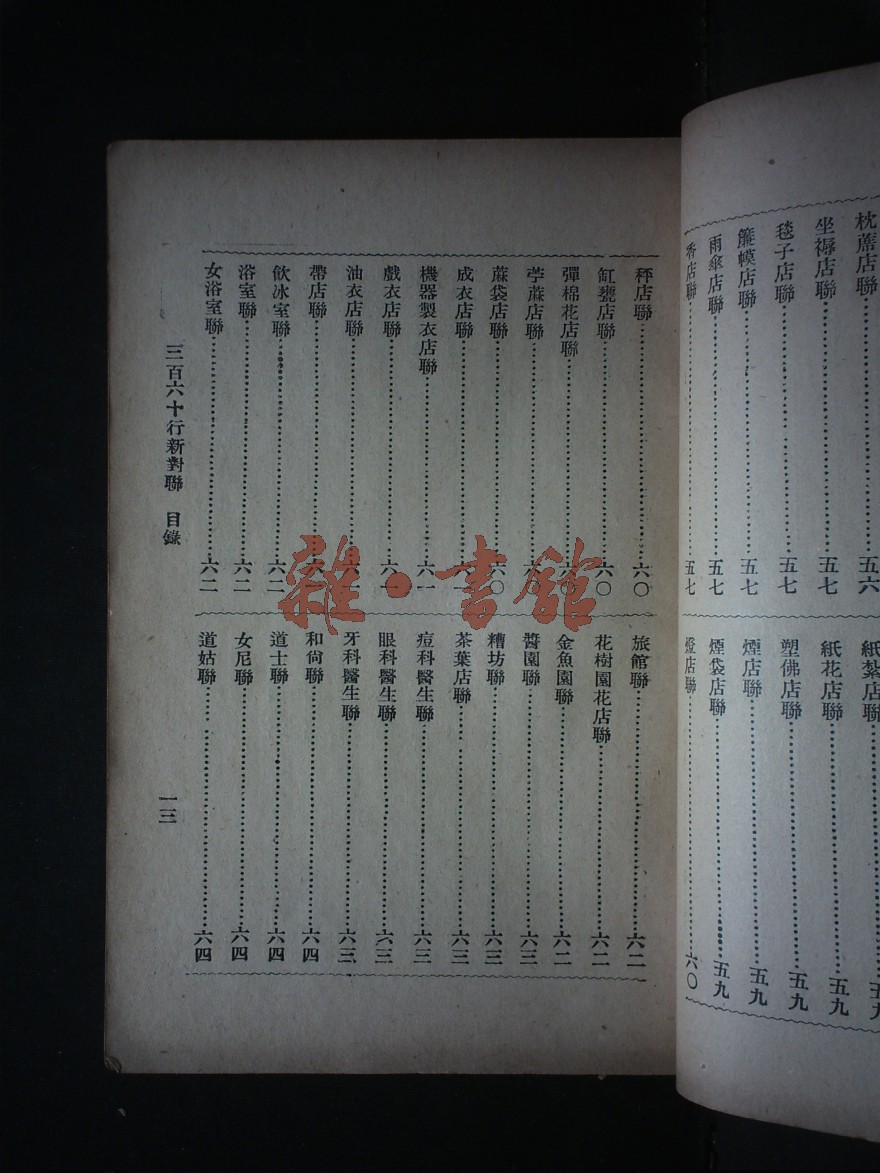 枕蓆店聯……五六
坐褥店聯……五七
毯子店聯……五七
簾幙店聯……五七
雨傘店聯……五七
香店聯……五七
紙紮店聯……五九
紙花店聯……五九
塑佛店聯……五九
煙店聯……五九
煙袋店聯……五九
燈店聯……六〇
秤店聯……六〇
缸甏店聯……六〇
彈棉花店聯……六〇
苧蔴店聯……六〇
蔴袋店聯……六〇
成衣店聯……六一
機器製衣店聯……六一
戲衣店聯……六一
油衣店聯……六一
帶店聯……六二
飲冰室聯……六二
浴室聯……六二
女浴室聯……六二
旅館聯……六二
花樹園花店聯……六二
金魚園聯……六二
醬園聯……六三
糟坊聯……六三
茶葉店聯……六三
痘科醫生聯……六三
眼科醫生聯……六三
牙科醫生聯……六三
和尙聯……六四
道士聯……六四
女尼聯……六四
道姑聯……六四
三百六十行新對聯 目錄
一三
雜·書館